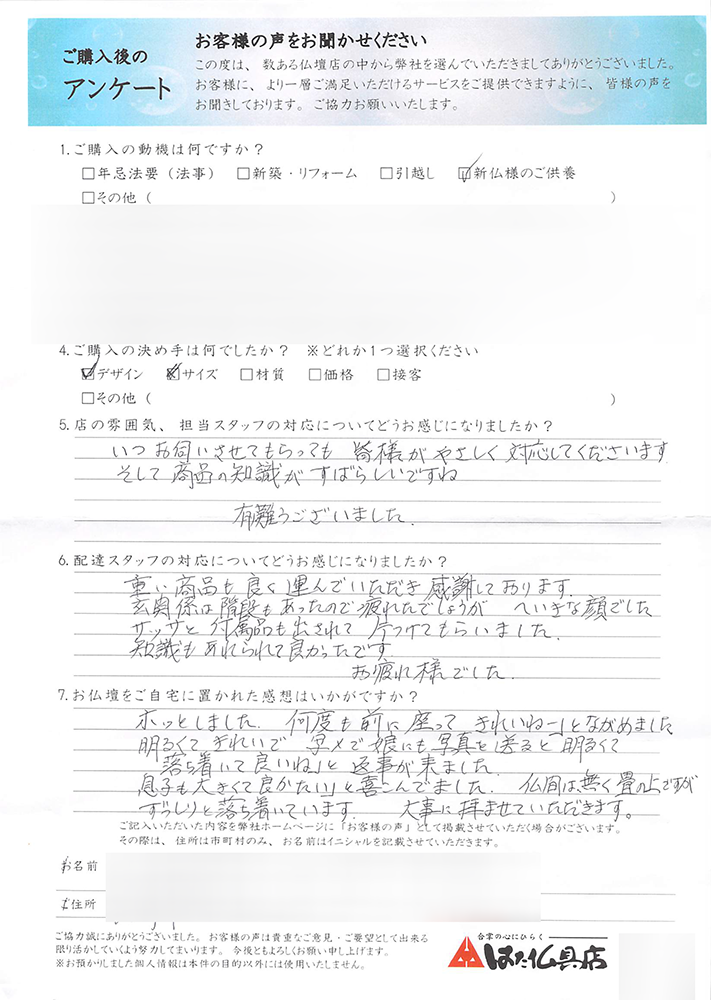 ご購入後の
アンケート
お客様の声をお聞かせください
この度は、数ある仏壇店の中から弊社を選んでいただきましてありがとうございました。
お客様に、より一層ご満足いただけるサービスをご提供できますように、皆様の声を
お聞きしております。ご協力お願いいたします。
1.ご購入の動機は何ですか?
□年忌法要(法事) □新築・リフォーム □引越し ☑新仏様のご供養
□その他( )
4.ご購入の決め手は何でしたか? ※どれか1つ選択ください
☑デザイン ☑サイズ □材質 □価格 □接客
□その他( )
5.店の雰囲気、担当スタッフの対応についてどうお感じになりましたか?
いつお伺いさせてもらっても 皆様がやさしく対応してくださいます
そして商品の知識がすばらしいですね
有難うございました.
6.配達スタッフの対応についてどうお感じになりましたか?
重い商品も良く運んでいただき感謝しております.
玄関係は階段もあったので疲れたでしょうが へいきな顔でした
サッサと付属品も出されて片づけてもらいました.
知識もあれられて良かったです
お疲れ様でした.
7.お仏壇をご自宅に置かれた感想はいかがですか?
ホッとしました. 何度も前に座って きれいねー」とながめました
明るくてきれいで 写メで娘にも写真を送ると明るくて
落ち着いて良いね」と返事が来ました.
息子も大きくて良かたい」と喜こんでました. 仏間は無く畳の上ですが
ずっしりと落ち着いています. 大事に拝ませていただきます。
ご記入いただいた内容を弊社ホームページに「お客様の声」として掲載させていただく場合がございます。
その際は、住所は市町村のみ、お名前はイニシャルを記載させていただきます。
お名前
ご住所
ご協力誠にありがとうございました。お客様の声は貴重なご意見・ご要望として出来る
限り活かしていくよう努力してまいります。今後ともよろしくお願い申し上げます。
※お預かりしました個人情報は本件の目的以外には使用いたしません。
合掌の心にひらく
はた仏具店